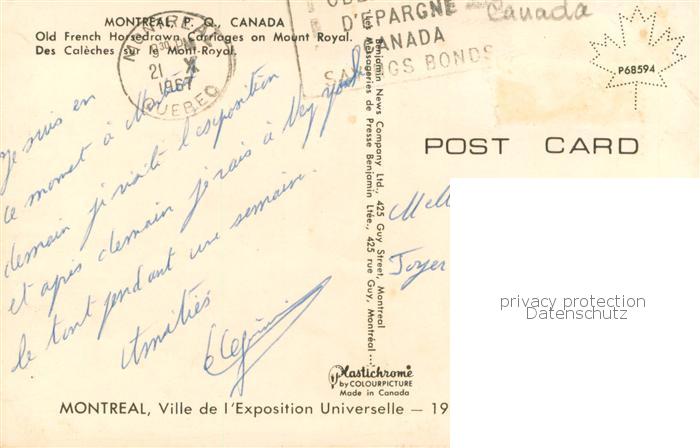 MONTREAL P. Q., CANADA
Old French Horsedrawn Carriages on Mount Royal.
Des Calèches sur le Mont-Royal.
MONTREAL
21 X
1967
QUEBEC
D'EPARGNE
CANADA
SAVINGS BONDS
Canada
P68594
POST CARD
Je suis en
ce moment à
demain je visite l'exposition
et après demain je vais à New York
le tout pendant une semaine.
Amitiés
Benjamin News Company Ltd., 425 Guy Street, Montreal
Les Messageries de Presse Benjamin Ltée., 425 rue Guy, Montréal
Foyer
privacy protection
Datenschutz
Plastichrome
by COLOURPICTURE
Made in Canada
MONTREAL, Ville de l'Exposition Universelle — 19